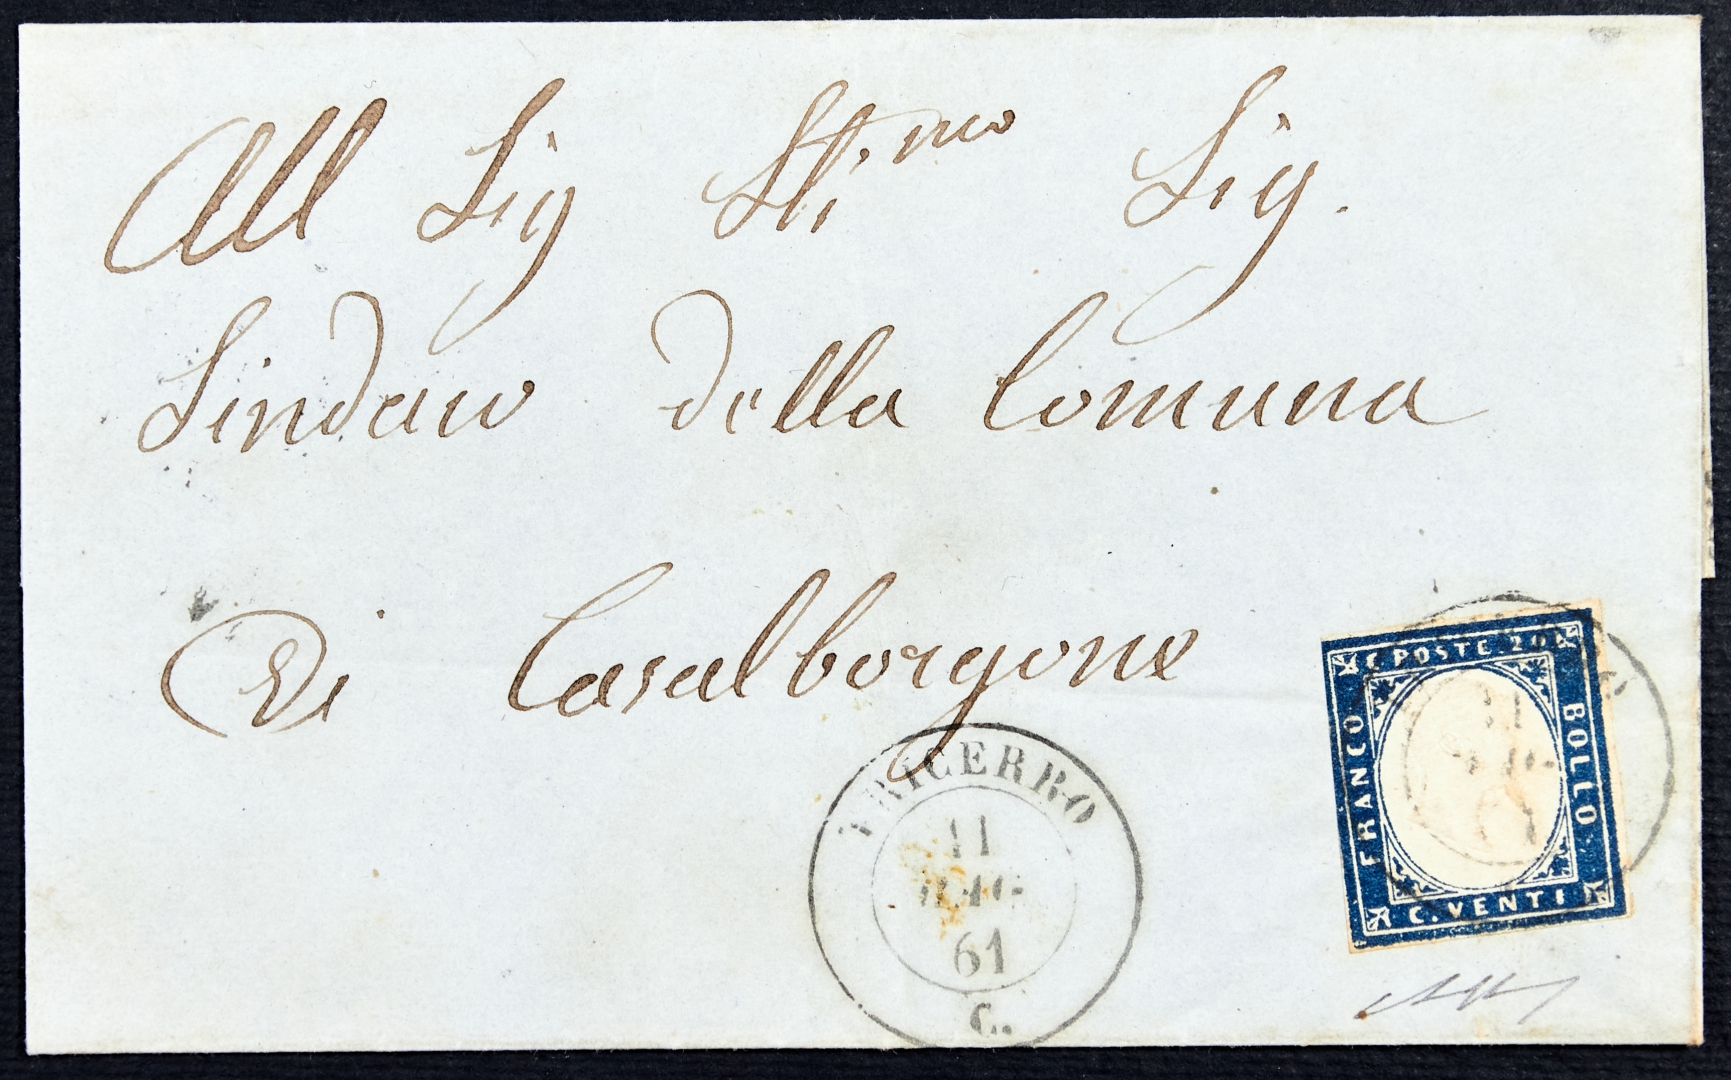 All Sig Sti.mo Sig.
Sindaco della Comuna
Di Casalborgone
TRICERRO
11
MAG
61
C.
C. POSTE 20
FRANCO
BOLLO
C. VENTI